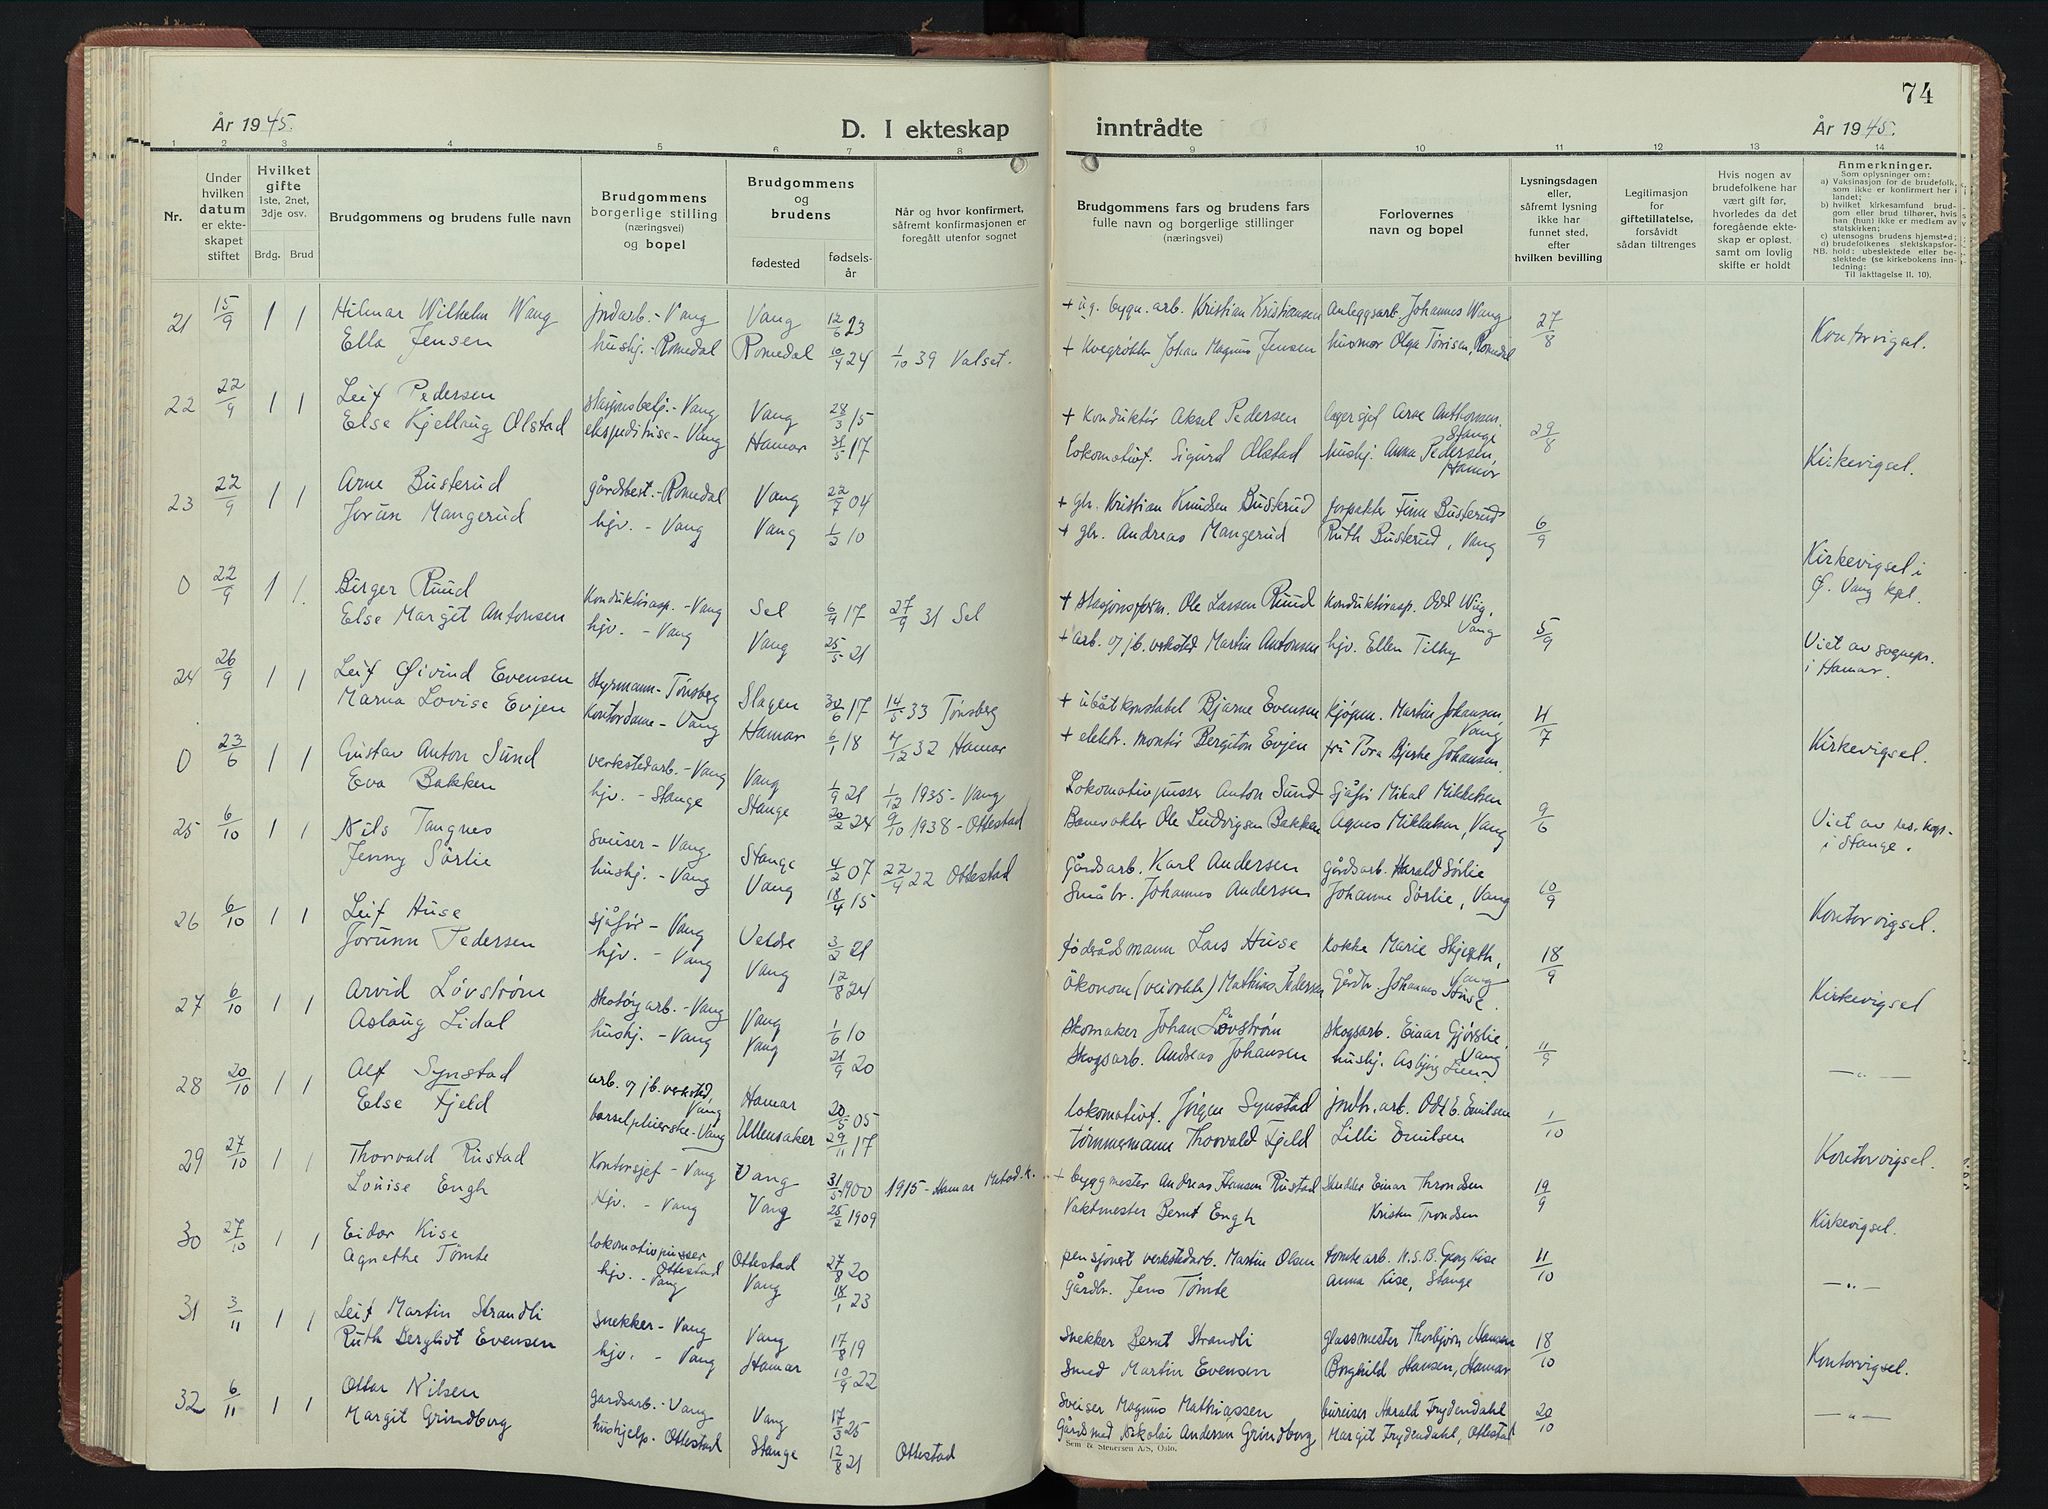 År 1945.
D. I ekteskap
1 2 3 4 5 6 7 8
Nr.
Under hvilken datum er ekteskapet stiftet
Hvilket gifte 1ste, 2net, 3dje osv.
Brdg. Brud
Brudgommens og brudens fulle navn
Brudgommens borgerlige stilling (næringsvei) og bopel
Brudgommens og brudens
fødested
fødselsår
Når og hvor konfirmert, såfremt konfirmasjonen er foregått utenfor sognet
21 15/9 1 1 Hilmar Wilhelm Wang jndarb. - Vang Vang 12/6 23
Ella Jensen hushj. - Romedal Romedal 10/4 24 1/10 39 Valset.
22 22/9 1 1 Leif Pedersen stasjonsbetj. - Vang Vang 28/3 15
Else Kjellaug Olstad ekspeditrise - Vang Hamar 31/5 17
23 22/9 1 1 Arne Busterud gårdsbest. - Romedal Vang 22/7 04
Jorun Mangerud hjv. - Vang Vang 1/2 10
0 22/9 1 1. Birger Ruud Konduktørasp. - Vang Sel 6/9 17 27/9 31 Sel
Else Margit Antonsen hjv. - Vang Vang 25/5 21
24 26/9 1 1 Leif Øivind Evensen Styrmann - Tønsberg Slagen 30/6 17 14/5 33 Tønsberg
Marna Lovise Evjen Kontordame - Vang Hamar 6/1 18 4/12 32 Hamar
0 23/6 1 1 Gustav Anton Sund verkstedarb. - Vang Vang 1/9 21 1/12 1935 - Vang
Eva Bakken hjv. - Stange Stange 20/2 24 9/10 1938 - Ottestad
25 6/10 1 1 Nils Tangnes Sveiser - Vang Stange 4/2 07 22/4 22 Ottestad
Jenny Sørlie hushj. - Vang Vang 18/4 15
26 6/10 1 1 Leif Huse sjåfør - Vang 3/2 21
Jorunn Pedersen hjv. - Vang Vang 12/8 24
27 6/10 1 1 Arvid Løvstrøm Skotøyarb. - Vang Vang 1/6 10
Aslaug Lidal hushj. - Vang Vang 21/9 20
28 20/10 1 1 Alf Synstad arb. v/ jb. verksted, Vang Hamar 20/5 05
Else Fjeld barselpleierske - Vang Ullensaker 29/11 17
29 27/10 1 1 Thorvald Rustad Kontorsjef - Vang Vang 31/5 1900 1915 - Hamar Metod. k.
Louise Engh Hjv. - Vang Vang 25/2 1909
30 27/10 1 1 Eidar Kise lokomotivpusser Ottestad Ottestad 27/8 20
Agnethe Tømte hjv. - Vang Vang 18/1 23
31 3/11 1 1 Leif Martin Strandli Snekker - Vang Vang 17/8 19
Ruth Bergliot Evensen hjv. - Vang Hamar 10/9 22
32 6/11 1 1 Ottar Nilsen gårdsarb. - Vang Vang 17/3 25
Margit Grindberg hushjelp. Ottestad Stange 12/8 21 Ottestad
74
inntrådte
År 1945.
9 10 11 12 13 14
Brudgommens fars og brudens fars fulle navn og borgerlige stillinger (næringsvei)
Forlovernes navn og bopel
Lysningsdagen eller, såfremt lysning ikke har funnet sted, efter hvilken bevilling
Legitimasjon for giftetillatelse, forsåvidt sådan tiltrenges
Hvis nogen av brudefolkene har vært gift før, hvorledes da det foregående ekteskap er opløst, samt om lovlig skifte er holdt
Anmerkninger.
Som oplysninger om:
a) Vaksinasjon for de brudefolk, som ikke er konfirmert her i landet;
b) hvilket kirkesamfund brudgom eller brud tilhører, hvis han (hun) ikke er medlem av statskirken;
c) utensogns brudens hjemsted;
d) brudefolkenes slektskapsforhold: ubeslektede eller beslektede (se kirkebokens innledning:
NB. Til iakttagelse II. 10).
+ u.g. bygn. arb. Kristian Kristiansen Anleggsarb. Johannes Wang 27/8 Kontorvigsel.
+ Kvegrøkter Johan Magnus Jensen husmor Olga Tørisen, Romedal
+ Konduktør Aksel Pedersen lagersjef Arne Anthonsen, Stange 29/8 Kirkevigsel.
Lokomotivf. Sigurd Olstad hushj. Anna Pedersen, Hamar
+ gbr. Kristian Knudsen Busterud forpakter Finn Busterud 6/9 Kirkevigsel i Ø. Vang kpl.
+ gbr. Andreas Mangerud Ruth Busterud, Vang
+ stasjonsform. Ole Larsen Ruud Konduktørasp. Odd Wiig, Vang 5/9 Viet av sognepr. i Hamar.
+ arb. v/ jb. verksted Martin Antonsen hjv. Ellen Tilby
+ ubåtkonstabel Bjarne Evensen Kjøpm. Martin Johansen, Vang 4/7 Kirkevigsel.
+ elektr. montør Bergiton Evjen fru Tora Bjerke Johansen.
Lokomotivpusser Anton Sund Sjåfør Mikal Mikkelsen 9/6 Viet av res. kap. i Stange.
Banevokter Ole Ludvigsen Bakken Agnes Mikkelsen, Vang
Gårdsarb. Karl Andersen gårdsarb. Harald Sørlie 10/9 Kontorvigsel.
Småbr. Johannes Andersen Johanne Sørlie, Vang
fødrådsmann Lars Huse Kokke Marie, Vang 18/9 Kirkevigsel
Økonom Mathias Pedersen Gårdbr. Johannes Huse.
Skomaker Johan Løvstrøm Skogsarb. Einar Gjørslie, Vang 11/9 — „ —
Skogsarb. Andreas Johansen hushj. Asbjørg Lien.
lokomotivf. Jørgen Synstad jndtr. arb. Odd E. Emilsen 1/10 Kontorvigsel.
tømmermann Thorvald Fjeld Lilli Emilsen
+ byggmester Andreas Hansen Rustad Snekker Einar Throndsen 19/9 Kirkevigsel.
Vaktmester Bernt Engh Kristen Trondsen
pensjonert verkstedarb. Martin Olsen tomtearb. N.S.B. Georg Kise 11/10 — „ —
Gårdbr. Jens Tømte Anna Kise, Stange
Snekker Bernt Strandli glassmester Thorbjørn Hansen 18/10 Kontorvigsel.
Smed Martin Evensen Borghild Hansen, Hamar
Sveiser Magnus Mathiassen bureiser Harald Frydendahl 20/10 — „ —
Gårdsmed Nikolai Andersen Grindberg Margit Frydendahl, Ottestad
Sem & Stenersen A/S, Oslo.